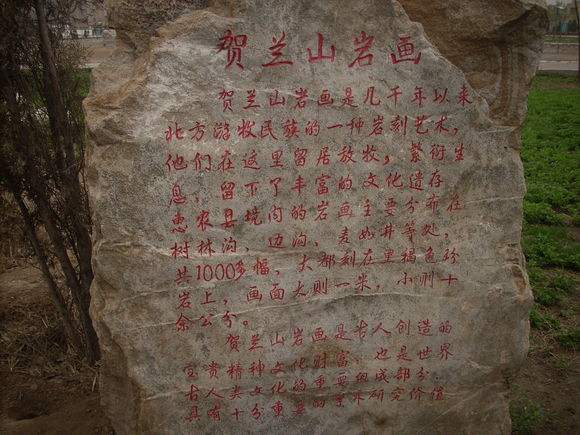 贺兰山岩画
贺兰山岩画是几千年以来
北方游牧民族的一种岩刻艺术,
他们在这里留居放牧,繁衍生
息,留下了丰富的文化遗存
惠农县境内的岩画主要分布在
树林沟,边沟、麦如井等处,
共1000多幅,大都刻在里褐色砂
岩上,画面大则一米,小则十
余公分。
贺兰山岩画是古人创造的
宝贵精神文化财富,也是世界
古人类文化的重要组成部分,
具有十分重要的学术研究价值